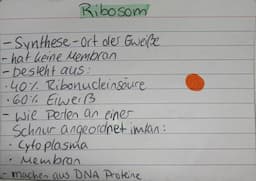 Ribosom
- Synthese-Ort der Eweiße
- hat keine Membran
- besteht aus:
· 40% Ribonucleinsäure
· 60% Eiweiß
- Wie Perlen an einer
Schnur angeordnet im/an:
· Cytoplasma
· Membran
- machen aus DNA Proteine